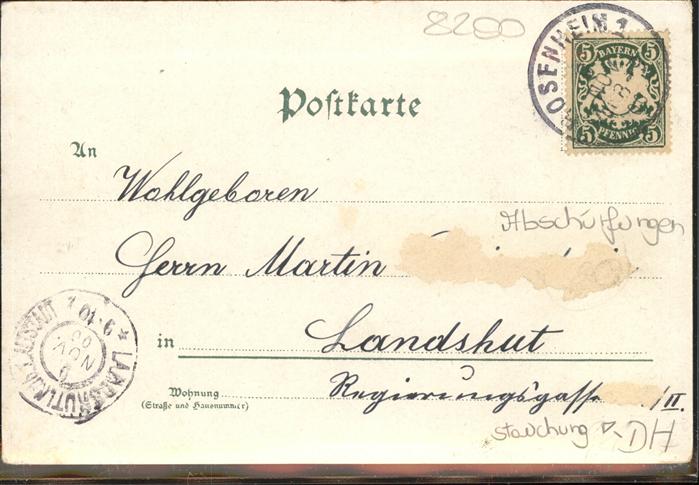 8200
ROSENHEIM 1
5 BAYERN 5
5 PFENNIG 5
Postkarte
An
Wohlgeboren
Abschürfungen
Herrn Martin
9-10
NOV.
00
in Landshut
Wohnung
(Straße und Hausnummer)
Regierungsgasse /II.
Stauchung DH